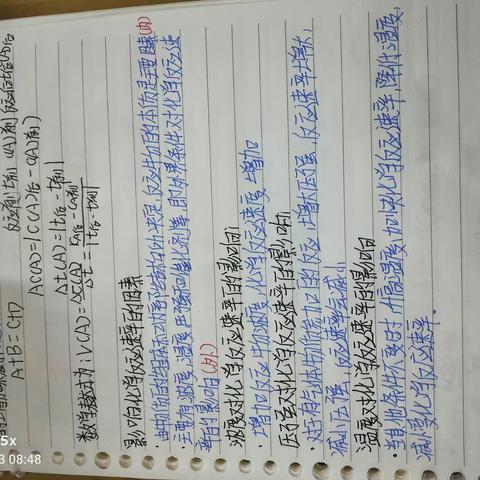 反应前(t前) c(A)前 反应后(t后) c(A)后
A+B=C+D
Δc(A)=|c(A)后-c(A)前|
Δt(A)=|t后-t前|
数学表达式为:v(A)=Δc(A)/Δt=|c后-c前|/|t后-t前|
影响化学反应速率的因素
·由物质的组成、结构和性质等因素决定,反应物的本质是主要因素(内)
·主要有浓度、温度、压强和催化剂等的外界条件对化学反应速
率的影响(外)
浓度对化学反应速率的影响:
·增加反应物浓度,化学反应速度增加
压强对化学反应速率的影响:
·对于有气体物质参加的反应,增大压强,反应速率增大,
减小压强,反应速率减小
温度对化学反应速率的影响
·其他条件不变时,升高温度,加快化学反应速率,降低温度,
减小化学反应速率.
5x
08:48